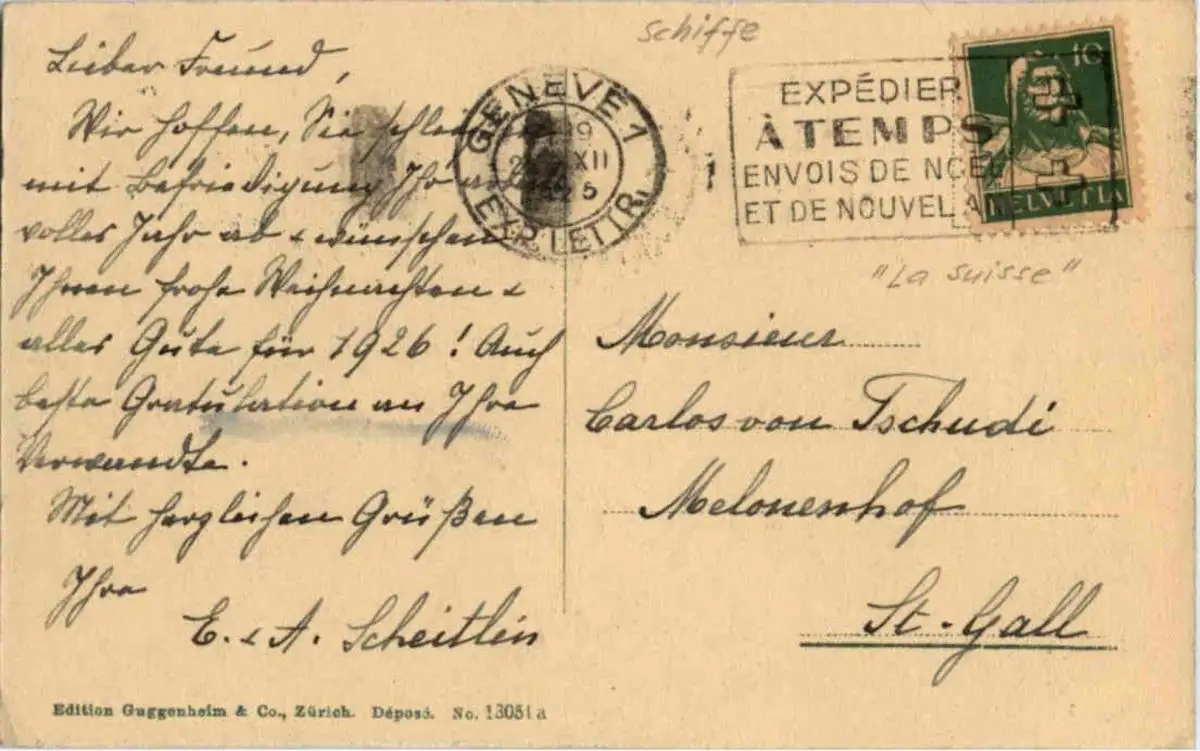 Schiffe
Lieber Freund,
Wir hoffen, Sie schließen
mit Befriedigung Ihr
volles Jahr ab & wünschen
Ihnen frohe Weihnachten &
alles Gute für 1926! Auch
beste Gratulation an Ihre
Verwandte.
Mit herzlichen Grüßen
Ihre
E. & A. Scheitlin
GENÈVE 1
XII
EXP. LETTR.
EXPÉDIER
À TEMPS
ENVOIS DE NOEL
ET DE NOUVEL AN
10
HELVETIA
"La Suisse"
Monsieur
Carlos von Tschudi
Melonenhof
St-Gall
Edition Guggenheim & Co., Zürich. Déposé. No. 13051 a